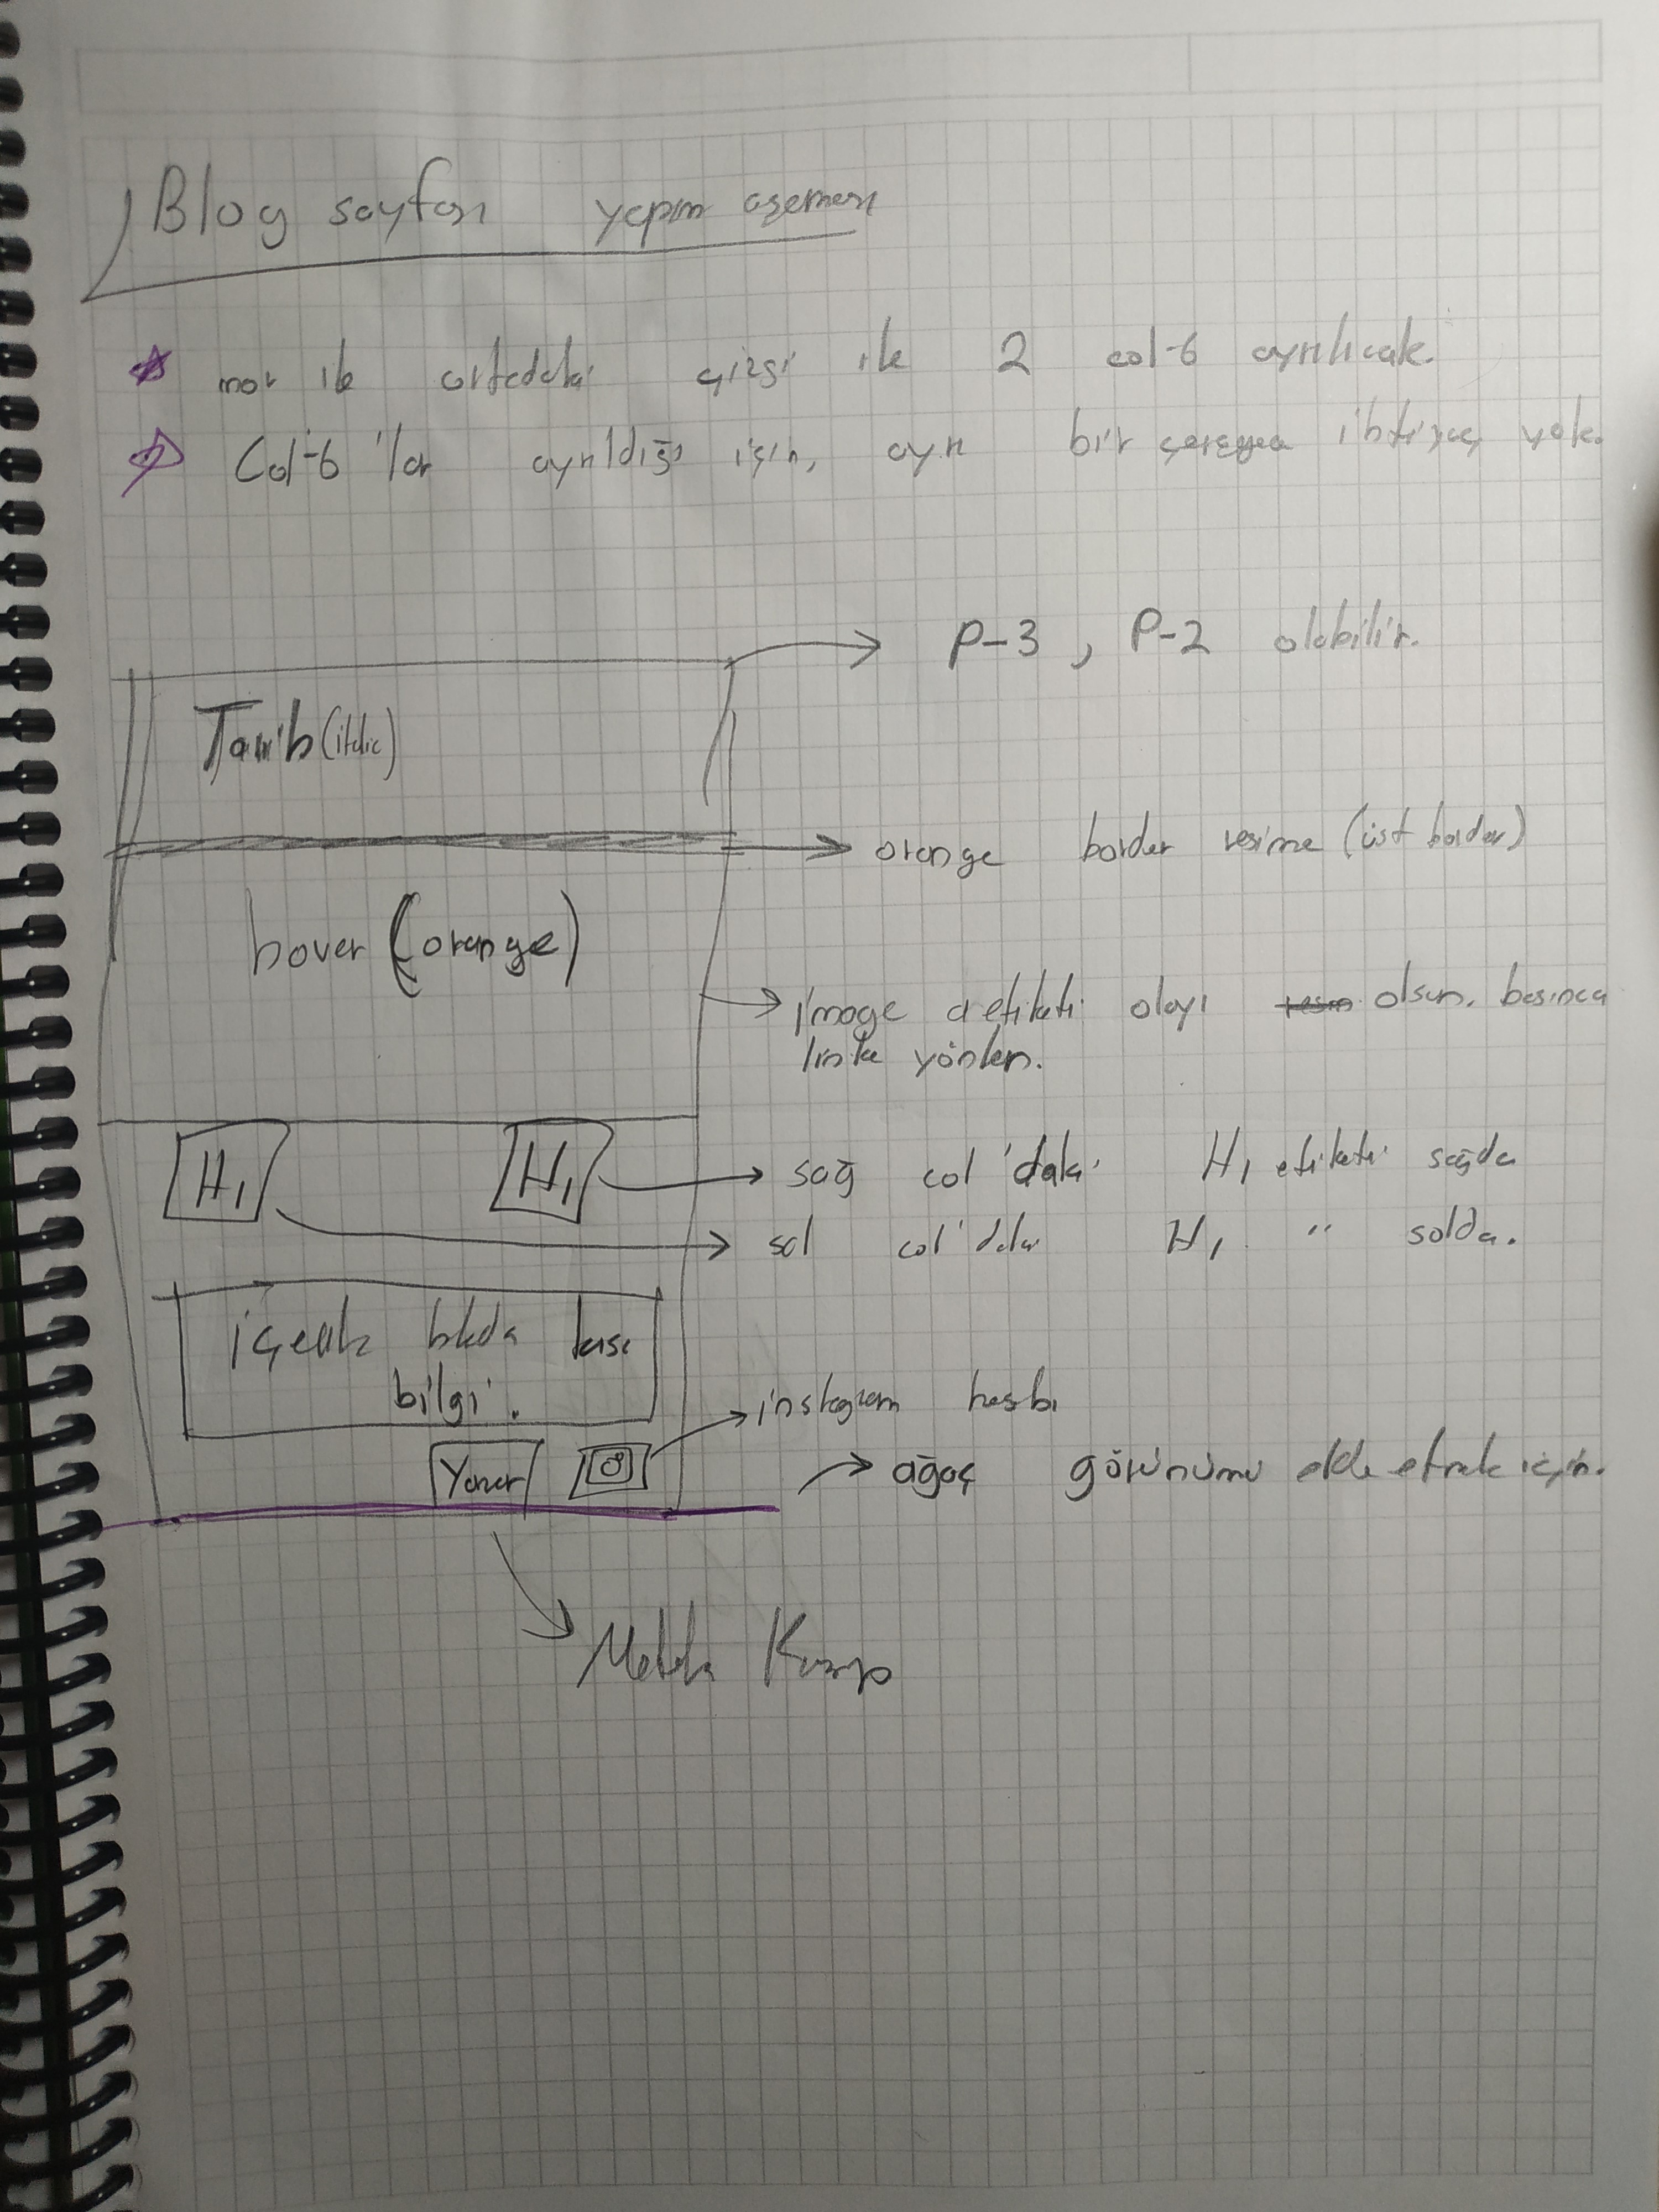 Blog sayfası yapım aşaması
mor ile ortadaki çizgi ile 2 col-6 ayrılıcak.
Col-6 'lar ayrıldığı için, ayrı bir çerçeveye ihtiyaç yok.
P-3, P-2 olabilir.
Tarih (italic)
orange border resime (üst border)
hover (orange)
image a etiketi olayı olsun. basınca
linke yönlen.
H1 H1
sağ col 'daki H1 etiketi sağda
sol col'daki H1 " solda.
içerik hkda kısa
bilgi.
instagram hesbı
Yazar
ağaç görünümü elde etmek için.